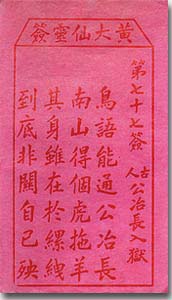 黃大仙靈簽
第七十七簽
古人公治長入獄
鳥語能通公治長
南山得個虎拖羊
其身雖在於縲絏
到底非關自己殃